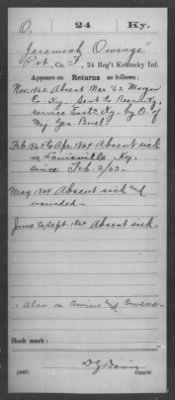 O. 24 Ky.
Jeremiah Owings
Pvt., Co. F, 24 Reg't Kentucky Inf.
Appears on Returns as follows:
Nov. 1862 Absent Mar. '62 Morgan
Co. Ky. Sent to Recruitg
service East'n Ky. by O. of
Maj. Gen. Buel
Feb. 1863 to Apr. 1864 Absent sick
in Louisville, Ky.
since Feb. 2/63.
May 1864 Absent sick and
wounded
June to Sept. 1864 Absent sick.
Also on
Book mark:
Copyist.